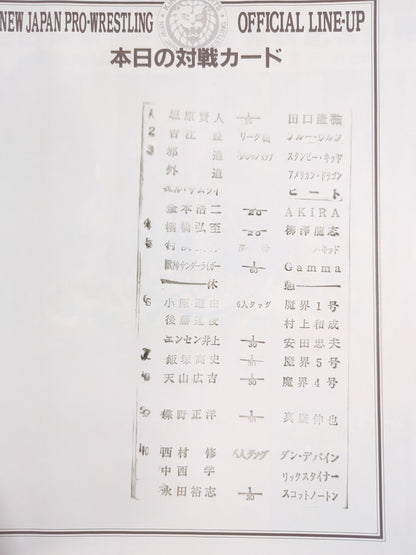 NEW JAPAN PRO-WRESTLING OFFICIAL LINE-UP
本日の対戦カード
1 垣原賢人 田口隆祐
2 吉江豊 リーグ戦 ブルー・ウルフ
3 邪道 スタンピー・キッド
外道 アメリカン・ドラゴン
エル・サムライ ヒート
金本浩二 1/20 AKIRA
4 棚橋弘至 1/20 柳澤龍志
5
獣神サンダーライガー 1/30 Gamma
休 憩
6 小原道由 6人タッグ 魔界1号
後藤達俊 村上和成
エンセン井上 1/30 安田忠夫
7 飯塚高史 1/30 魔界5号
8 天山広吉 1/30 魔界4号
9 蝶野正洋 1/30 真壁伸也
10 西村修 6人タッグ ダン・デバイン
中西学 リックスタイナー
永田裕志 1/30 スコットノートン